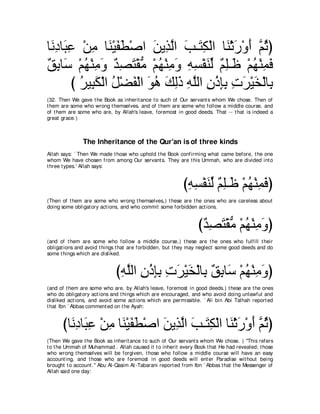 (ثُمَّ أَوْرَثْنَا الْكِتَـبَ الَّذِينَ اصْطَفَيْنَا مِنْ عِبَادِنَا
فَمِنْهُمْ ظَـلِمٌ لِّنَفْسِهِ وَمِنْهُمْ مُّقْتَصِدٌ وَمِنْهُمْ سَابِقٌ
بِالْخَيْرَتِ بِإِذُنِ اللَّهِ ذَلِكَ هُوَ الْفَضْلُ الْكَبِيرُ )
(32. Then We gave the Book as inheritance to such of Our servants whom We chose. Then of
them are some who wrong themselves, and of them are some who follow a middle course, and
of them are some who are, by Allah's leave, foremost in good deeds. That -- that is indeed a
great grace.)
The Inheritance of the Qur'an is of three kinds
Allah says: `Then We made those who uphold the Book confirming what came before, the one
whom We have chosen from among Our servants. They are this Ummah, who are divided into
three types.' Allah says:
(فَمِنْهُمْ ظَـلِمٌ لِّنَفْسِهِ)
(Then of them are some who wrong themselves,) these are the ones who are careless about
doing some obligatory actions, and who commit some forbidden actions.
(وَمِنْهُمْ مُّقْتَصِدٌ)
(and of them are some who follow a middle course,) these are the ones who fulfill their
obligations and avoid things that are forbidden, but they may neglect some good deeds and do
some things which are disliked.
(وَمِنْهُمْ سَابِقٌ بِالْخَيْرَتِ بِإِذُنِ اللَّهِ)
(and of them are some who are, by Allah's leave, foremost in good deeds.) these are the ones
who do obligatory actions and things which are encouraged, and who avoid doing unlawful and
disliked actions, and avoid some actions which are permissible. `Ali bin Abi Talhah reported
that Ibn `Abbas commented on the Ayah:
(ثُمَّ أَوْرَثْنَا الْكِتَـبَ الَّذِينَ اصْطَفَيْنَا مِنْ عِبَادِنَا)
(Then We gave the Book as inheritance to such of Our servants whom We chose. ) "This refers
to the Ummah of Muhammad . Allah caused it to inherit every Book that He had revealed; those
who wrong themselves will be forgiven, those who follow a middle course will have an easy
accounting, and those who are foremost in good deeds will enter Paradise without being
brought to account." Abu Al-Qasim At-Tabarani reported from Ibn `Abbas that the Messenger of
Allah said one day: